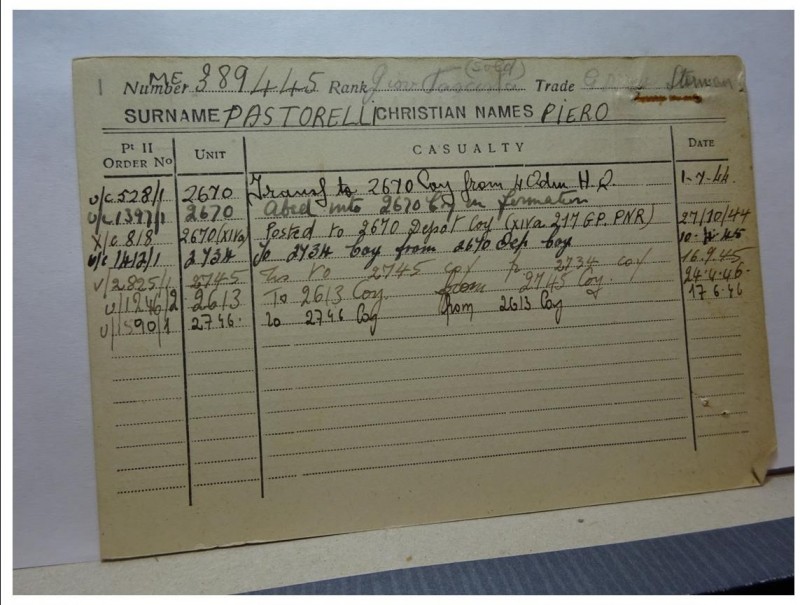 ME
Number 389445 Rank (Sold) Trade
SURNAME PASTORELLI CHRISTIAN NAMES PIERO
Pt II ORDER No UNIT CASUALTY DATE
U/C 528/1 2670 Transf to 2670 Coy from 4 Adm H.Q. 1-7-44.
U/C 1397/1 2670 Abed into 2670 Coy in formation
X/C 8/8 2670 (XIVa) Posted to 2670 Depot Coy (XIVa 217 G.P. PNR) 27/10/44
U/C 1412/1 2734 To 2734 Coy from 2670 Dep Coy
U/2825/1 2745 to 2745 Coy 2734 Coy 16.9.45
U/1246/2 2613 To 2613 Coy. from 2745 Coy. 24.4.46.
U/1590/1 2746. to 2746 Coy from 2613 Coy 17.6.46